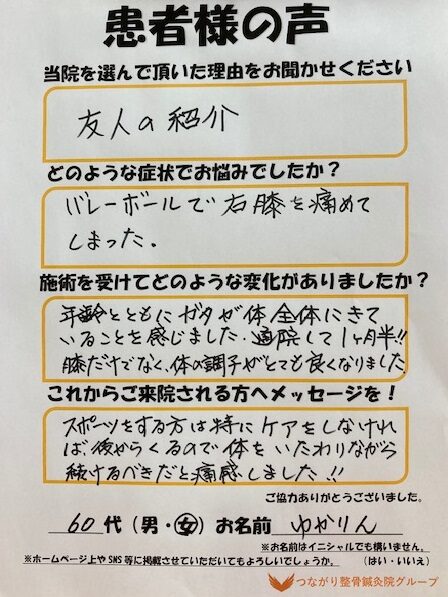 患者様の声
当院を選んで頂いた理由をお聞かせください
友人の紹介
どのような症状でお悩みでしたか？
バレーボールで右膝を痛めて
しまった。
施術を受けてどのような変化がありましたか？
年齢とともにガタが体全体にきて
いることを感じました。通院して1ヶ月半!!
膝だけでなく、体の調子がとても良くなりました
これからご来院される方へメッセージを！
スポーツをする方は特にケアをしなけれ
ば、後からくるので体をいたわりながら
続けるべきだと痛感しました!!
ご協力ありがとうございました。
60代（男・女）お名前 ゆかりん
※お名前はイニシャルでも構いません。
※ホームページ上やSNS等に掲載させていただいてもよろしいでしょうか。（はい・いいえ）
つながり整骨鍼灸院グループ